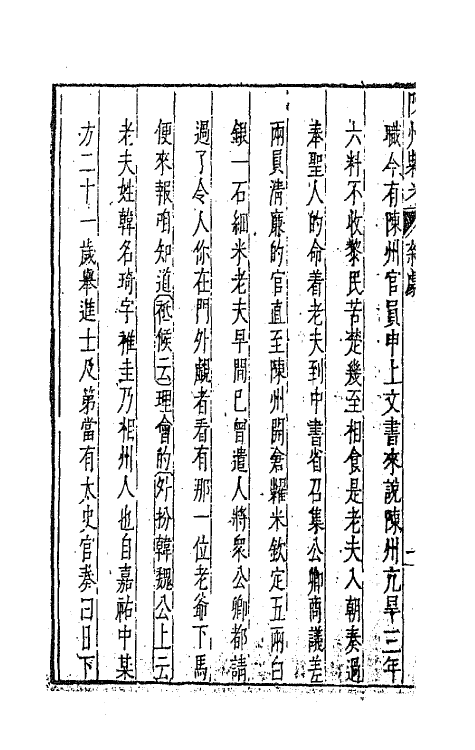 職今有陳州官員申上文書來說陳州亢旱三年
六料不收黎民苦楚幾至相食是老夫入朝奏過
奉聖人的命着老夫到中書省召集公卿商議差
兩員清廉的官直至陳州開倉糶米欽定五兩白
銀一石細米老夫早間已曾遣人將衆公卿都請
過了令人你在門外覷者看有那一位老爺下馬
便來報咱知道祗候云理會的外扮韓魏公上云
老夫姓韓名琦字稚圭乃相州人也自嘉祐中某
方二十一歲舉進士及第當有太史官奏曰日下